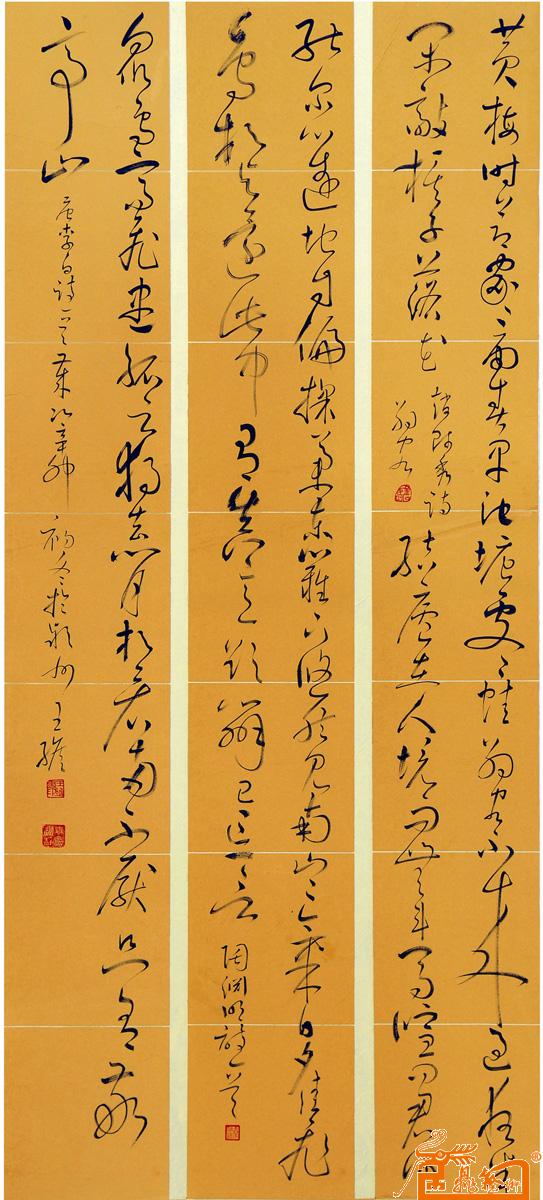 黄梅时节家家雨青草池塘处处蛙有约不来过夜半
闲敲棋子落灯花 赵师秀诗
有约
结庐在人境而无车马喧问君何
能尔心远地自偏採菊东篱下悠然见南山山气日夕佳飞
鸟相与还此中有真意欲辩已忘言 陶渊明诗一首
众鸟高飞尽孤云独去闲相看两不厌只有敬
亭山 唐李白诗一首 岁次辛卯 初冬于颍州 王